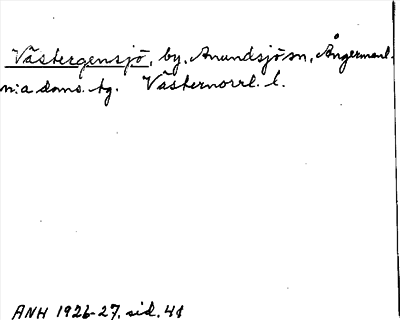 Västergensjö, by, Anundsjö sn, Ångermanl.
n:a doms. tg. Västernorrl. l.
ANH 1926-27, sid. 41